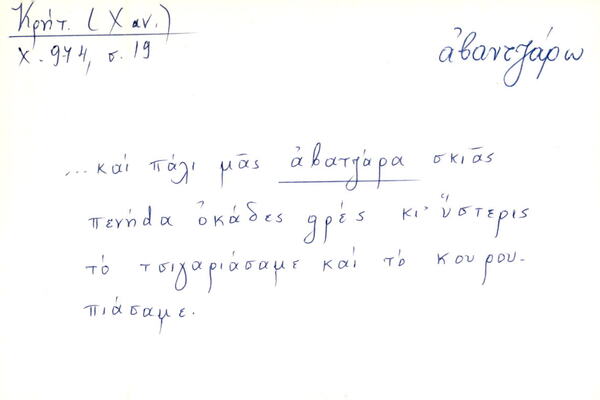 Κρήτ. (Χαν.)
Χ. 974, σ. 19
ἀβαντζάρω
...καί πάλι μᾶς ἀβατζάρα σκιᾶς
πενήdα ὀκάδες χρές κι' ὕστερις
τό τσιγαριάσαμε καί τό κουρου-
πιάσαμε.